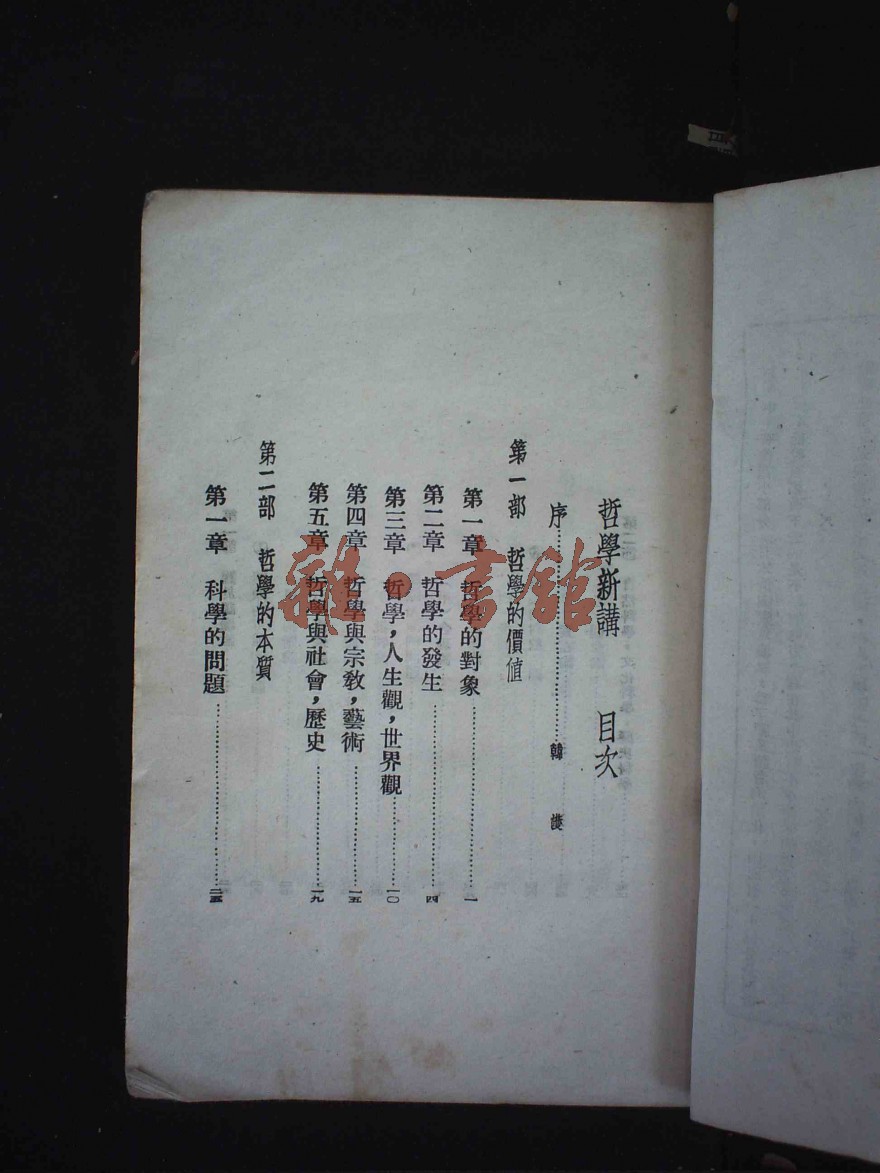 哲學新講　目次
序……………韓護
第一部　哲學的價值
第一章　哲學的對象……………一
第二章　哲學的發生……………四
第三章　哲學，人生觀，世界觀……………一〇
第四章　哲學與宗教，藝術……………一五
第五章　哲學與社會，歷史……………一九
第二部　哲學的本質
第一章　科學的問題……………二五
雜·書館